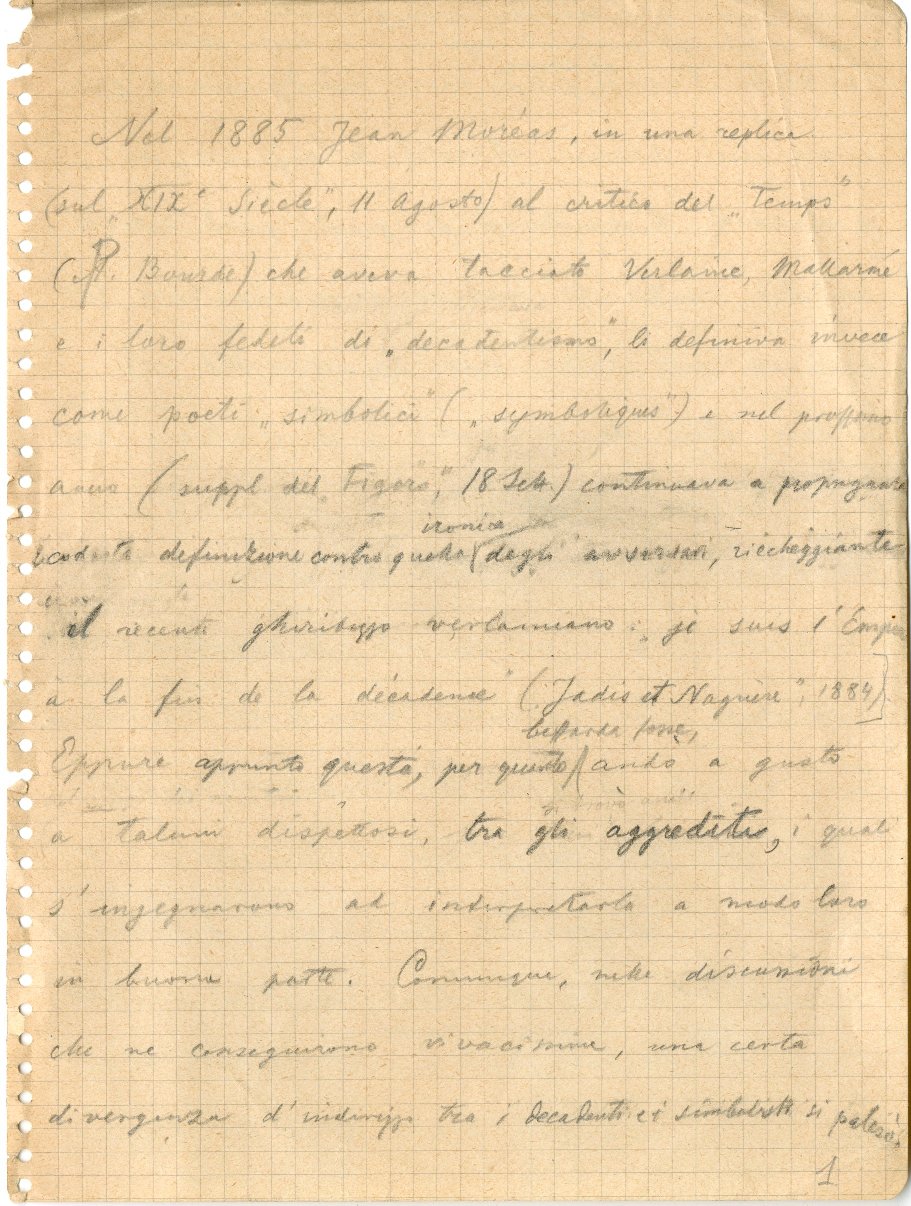 Nel 1885 Jean Moréas, in una replica
(sul „XIXe Siècle", 11 Agosto) al critico del „Temps"
(P. Bourde) che aveva tacciato Verlaine, Mallarmé
e i loro fedeli di „decadentismo", li definiva invece
come poeti „simbolici" („symboliques") e nel prossimo
anno (suppl del „Figaro", 18 Sett.) continuava a propugnare
codesta definizione contro quella degli avversari, riecheggiante
ironica
il recente ghiribizzo verlainiano: „je suis l'Empire
à la fin de la décadence" („Jadis et Naguère", 1884).
beffarda fosse,
Eppure appunto questa, per quanto andò a gusto
a taluni dispettosi, tra gli aggrediti, i quali
s'ingegnarono ad interpretarla a modo loro
in buona parte. Comunque, nelle discussioni
che ne conseguirono vivacissime, una certa
divergenza d'indirizzi tra i decadenti e i simbolisti si palesò,
1